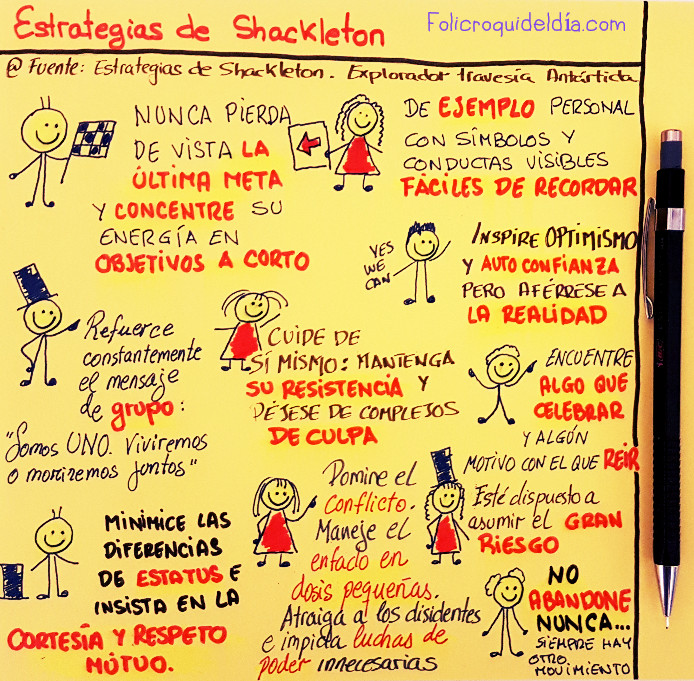 Estrategias de Shackleton
Folicroquideldía.com
@ Fuente: Estrategias de Shackleton. Explorador travesía Antártida
NUNCA PIERDA
DE VISTA LA
ÚLTIMA META
Y CONCENTRE SU
ENERGÍA EN
OBJETIVOS A CORTO
DE EJEMPLO PERSONAL
CON SÍMBOLOS Y
CONDUCTAS VISIBLES
FÁCILES DE RECORDAR
YES
WE
CAN
INSPIRE OPTIMISMO
Y AUTO CONFIANZA
PERO AFÉRRESE A
LA REALIDAD
Refuerce
constantemente
el mensaje
de grupo:
"Somos UNO. Viviremos
o moriremos juntos"
CUIDE DE
SÍ MISMO: MANTENGA
SU RESISTENCIA Y
DÉJESE DE COMPLEJOS
DE CULPA
ENCUENTRE
ALGO QUE
CELEBRAR
Y ALGÚN
MOTIVO CON EL QUE REÍR
MINIMICE LAS
DIFERENCIAS
DE ESTATUS E
INSISTA EN LA
CORTESÍA Y RESPETO
MÚTUO.
Domine el
conflicto.
Maneje el
enfado en
dosis pequeñas.
Atraiga a los disidentes
e impida luchas de
poder innecesarias
Esté dispuesto a
asumir el GRAN
RIESGO
NO
ABANDONE
NUNCA...
SIEMPRE HAY
OTRO
MOVIMIENTO